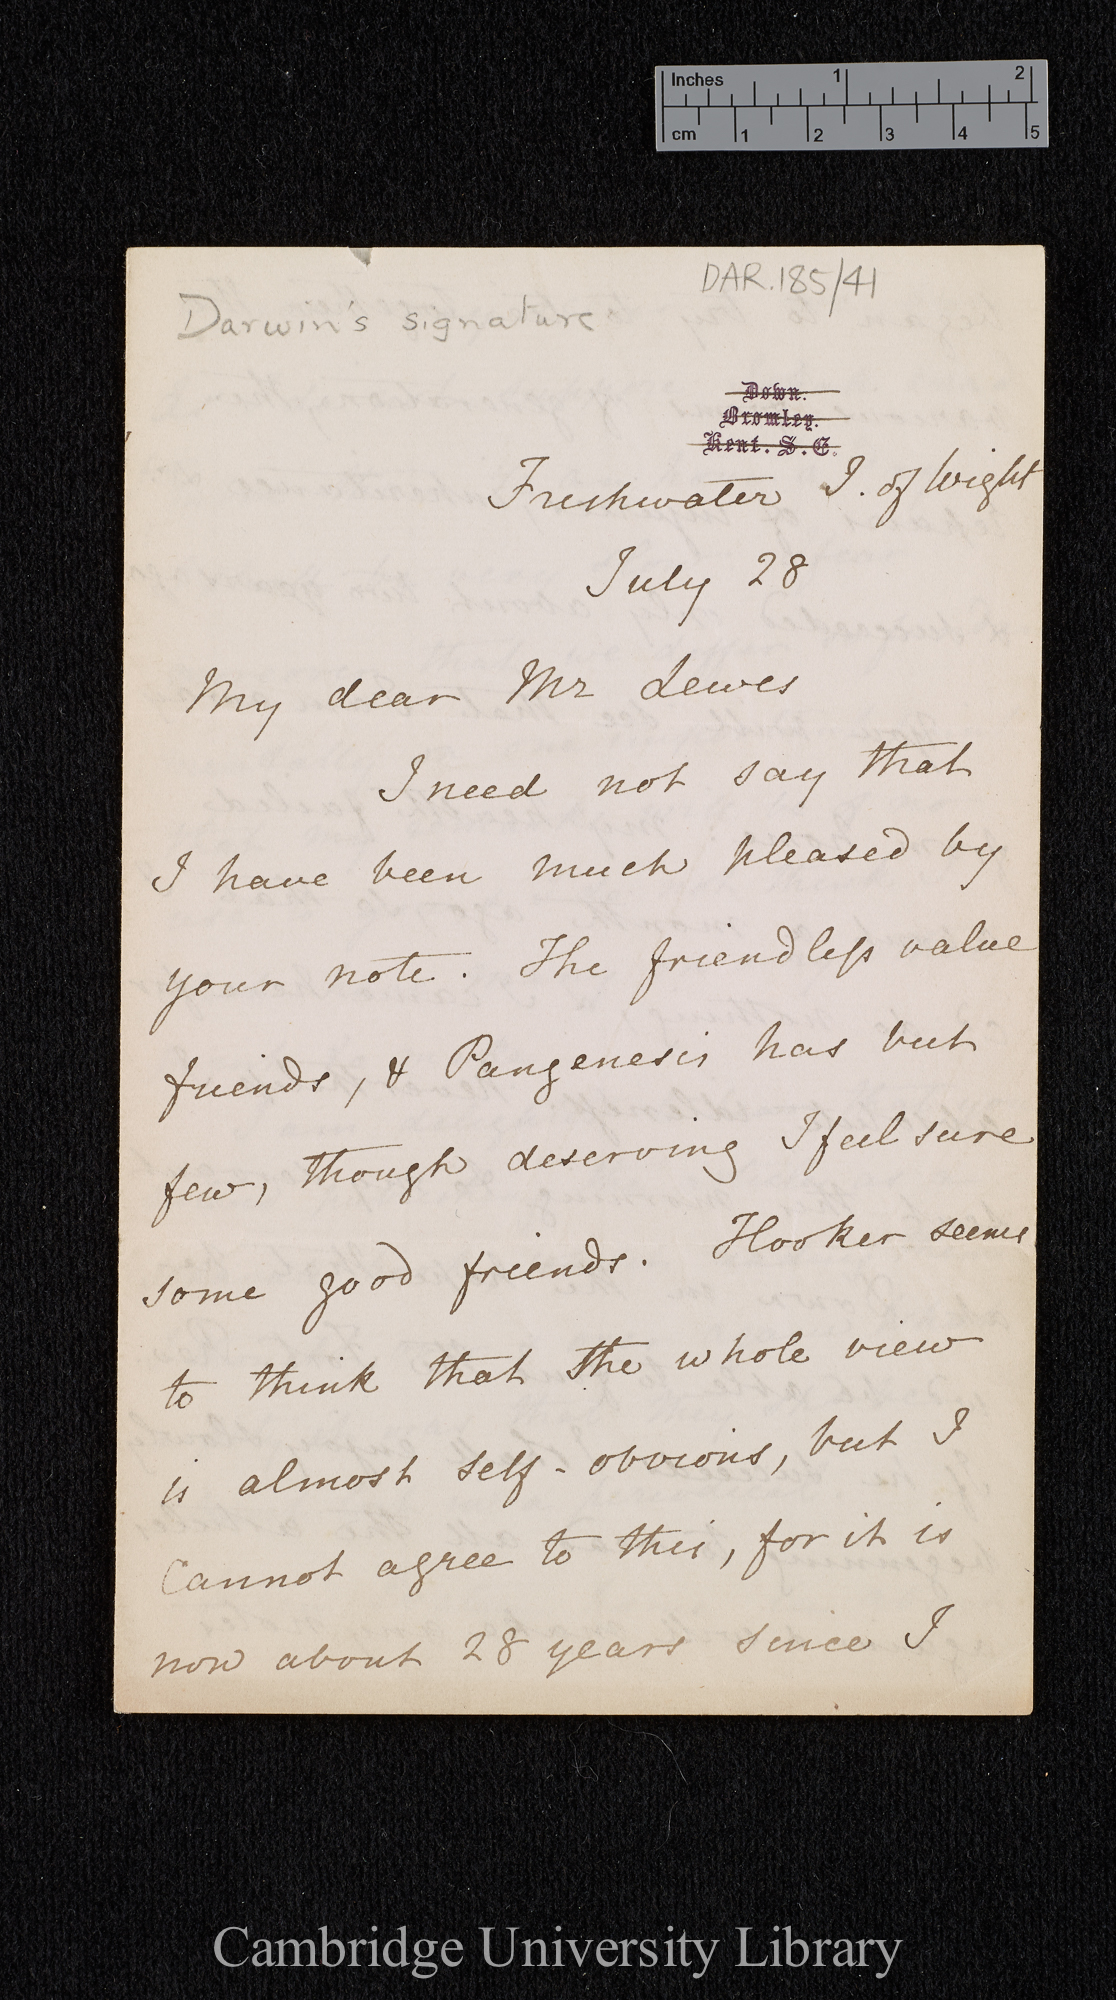 Inches 1 2
cm 1 2 3 4 5
DAR.185/41
Darwin's signature
Down.
Bromley.
Kent. S.E.
Freshwater I. of Wight
July 28
My dear Mr Lewes
I need not say that
I have been much pleased by
your note. The friendless value
friends, & Pangenesis has but
few, though deserving I feel sure
some good friends. Hooker seems
to think that the whole view
is almost self-obvious, but I
cannot agree to this, for it is
now about 28 years since I
Cambridge University Library